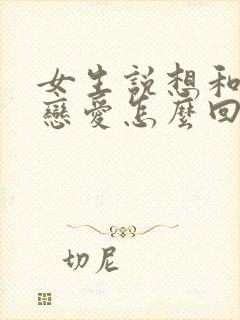 女生說想和
戀愛怎麼回
切尼